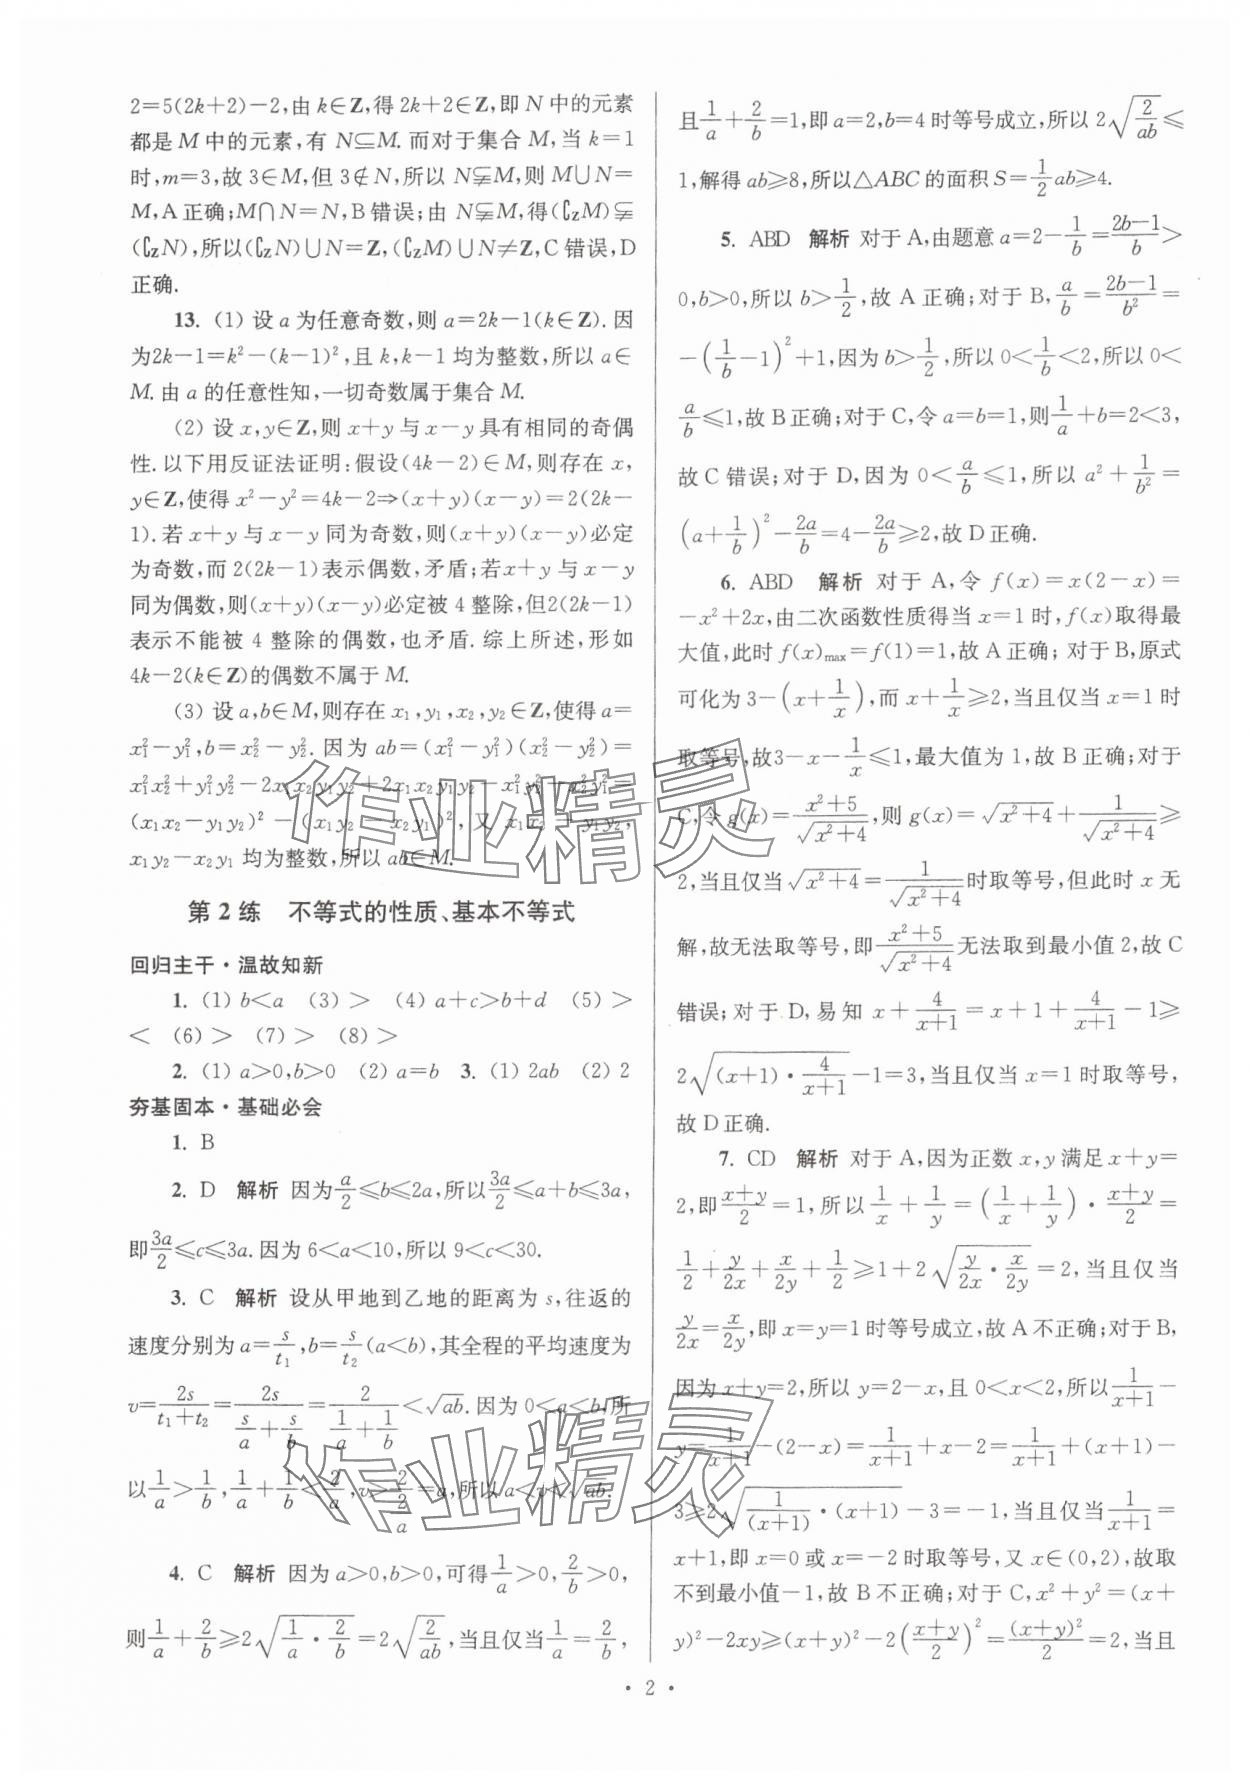 2=5(2k+2)-2,由 k∈Z,得 2k+2∈Z,即 N 中的元素
都是 M 中的元素,有 N⊆M. 而对于集合 M,当 k=1
时,m=3,故 3∈M,但 3∉N,所以 N⫋M,则 M∪N=
M,A 正确;M∩N=N,B 错误;由 N⫋M,得(∁ZM)⫋
(∁ZN),所以(∁ZN)∪N=Z,(∁ZM)∪N≠Z,C 错误,D
正确.
13. (1) 设 a 为任意奇数,则 a=2k-1(k∈Z). 因
为2k-1=k²-(k-1)²,且 k,k-1 均为整数,所以 a∈
M. 由 a 的任意性知,一切奇数属于集合 M.
(2) 设 x,y∈Z,则 x+y 与 x-y 具有相同的奇偶
性. 以下用反证法证明:假设(4k-2)∈M,则存在 x,
y∈Z,使得 x²-y²=4k-2⇒(x+y)(x-y)=2(2k-
1). 若 x+y 与 x-y 同为奇数,则(x+y)(x-y)必定
为奇数,而 2(2k-1)表示偶数,矛盾;若x+y 与 x-y
同为偶数,则(x+y)(x-y)必定被 4 整除,但2(2k-1)
表示不能被 4 整除的偶数,也矛盾. 综上所述,形如
4k-2(k∈Z)的偶数不属于 M.
(3) 设 a,b∈M,则存在 x₁,y₁,x₂,y₂∈Z,使得 a=
x₁²-y₁²,b=x₂²-y₂². 因为 ab=(x₁²-y₁²)(x₂²-y₂²)=
x₁²x₂²+y₁²y₂²-2x₁x₂y₁y₂+2x₁x₂y₁y₂-x₁²y₂²-x₂²y₁²=
(x₁x₂-y₁y₂)²-(x₁y₂-x₂y₁)²,又 x₁x₂-y₁y₂,
x₁y₂-x₂y₁ 均为整数,所以 ab∈M.
第 2 练 不等式的性质、基本不等式
回归主干·温故知新
1. (1) b<a (3) > (4) a+c>b+d (5) >
< (6) > (7) > (8) >
2. (1) a>0,b>0 (2) a=b 3. (1) 2ab (2) 2
夯基固本·基础必会
1. B
2. D 解析 因为a/2≤b≤2a,所以3a/2≤a+b≤3a,
即3a/2≤c≤3a. 因为 6<a<10,所以 9<c<30.
3. C 解析 设从甲地到乙地的距离为 s,往返的
速度分别为 a=s/t₁,b=s/t₂(a<b),其全程的平均速度为
v=2s/(t₁+t₂)=2s/(s/a+s/b)=2/(1/a+1/b)<√ab. 因为 0<a<b,所
以1/a>1/b,1/a+1/b<2/a,v>2/(2/a)=a,所以 a<v<√ab.
4. C 解析 因为 a>0,b>0,可得1/a>0,2/b>0,
则1/a+2/b≥2√(1/a·2/b)=2√(2/ab),当且仅当1/a=2/b,
且1/a+2/b=1,即 a=2,b=4 时等号成立,所以 2√(2/ab)≤
1,解得 ab≥8,所以△ABC 的面积 S=1/2ab≥4.
5. ABD 解析 对于 A,由题意 a=2-1/b=(2b-1)/b>
0,b>0,所以 b>1/2,故 A 正确;对于 B,a/b=(2b-1)/b²=
-(1/b-1)²+1,因为 b>1/2,所以 0<1/b<2,所以 0<
a/b≤1,故 B 正确;对于 C,令 a=b=1,则1/a+b=2<3,
故 C 错误;对于 D,因为 0<a/b≤1,所以 a²+1/b²=
(a+1/b)²-2a/b=4-2a/b≥2,故 D 正确.
6. ABD 解析 对于 A,令 f(x)=x(2-x)=
-x²+2x,由二次函数性质得当 x=1 时,f(x)取得最
大值,此时 f(x)max=f(1)=1,故 A 正确;对于 B,原式
可化为 3-(x+1/x),而 x+1/x≥2,当且仅当 x=1 时
取等号,故3-x-1/x≤1,最大值为 1,故 B 正确;对于
C,令 g(x)=(x²+5)/√(x²+4),则 g(x)=√(x²+4)+1/√(x²+4)≥
2,当且仅当√(x²+4)=1/√(x²+4)时取等号,但此时 x 无
解,故无法取等号,即(x²+5)/√(x²+4)无法取到最小值 2,故 C
错误;对于 D,易知 x+4/(x+1)=x+1+4/(x+1)-1≥
2√((x+1)·4/(x+1))-1=3,当且仅当 x=1 时取等号,
故 D 正确.
7. CD 解析 对于 A,因为正数 x,y 满足 x+y=
2,即(x+y)/2=1,所以1/x+1/y=(1/x+1/y)·(x+y)/2=
1/2+y/2x+x/2y+1/2≥1+2√(y/2x·x/2y)=2,当且仅当
y/2x=x/2y,即 x=y=1 时等号成立,故 A 不正确;对于 B,
因为 x+y=2,所以 y=2-x,且 0<x<2,所以1/(x+1)-
y=1/(x+1)-(2-x)=1/(x+1)+x-2=1/(x+1)+(x+1)-
3≥2√(1/(x+1)·(x+1))-3=-1,当且仅当1/(x+1)=
x+1,即 x=0 或 x=-2 时取等号,又 x∈(0,2),故取
不到最小值-1,故 B 不正确;对于 C,x²+y²=(x+
y)²-2xy≥(x+y)²-2((x+y)/2)²=(x+y)²/2=2,当且
·2·
作业精灵
作业精灵